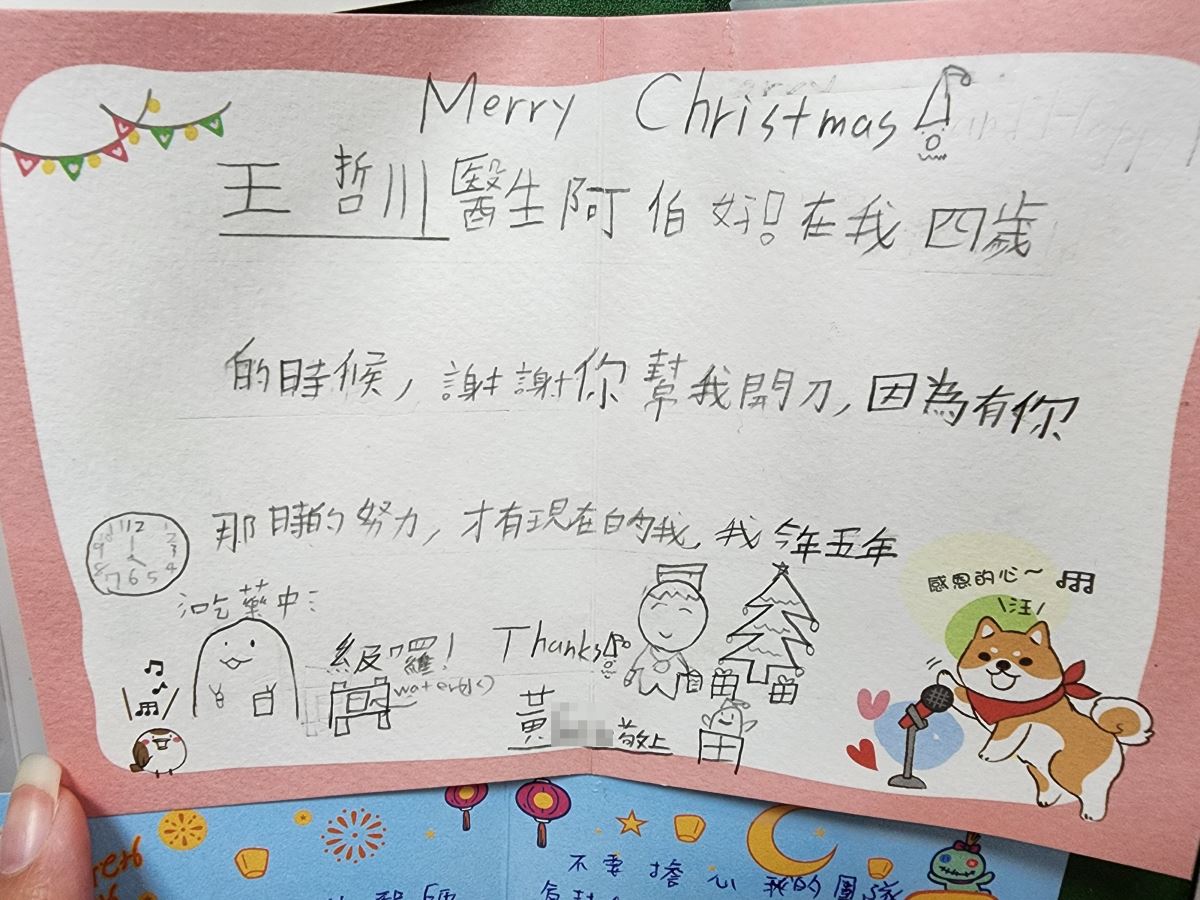 Merry Christmas
王哲川醫生阿伯好!在我四歲
的時候,謝謝你幫我開刀,因為有你
那時的努力,才有現在的我,我今年五年
12
吃藥中:
級囉!
water(水)
Thanks
黃
敬上
感恩的心~
汪
不要擔心我的團隊